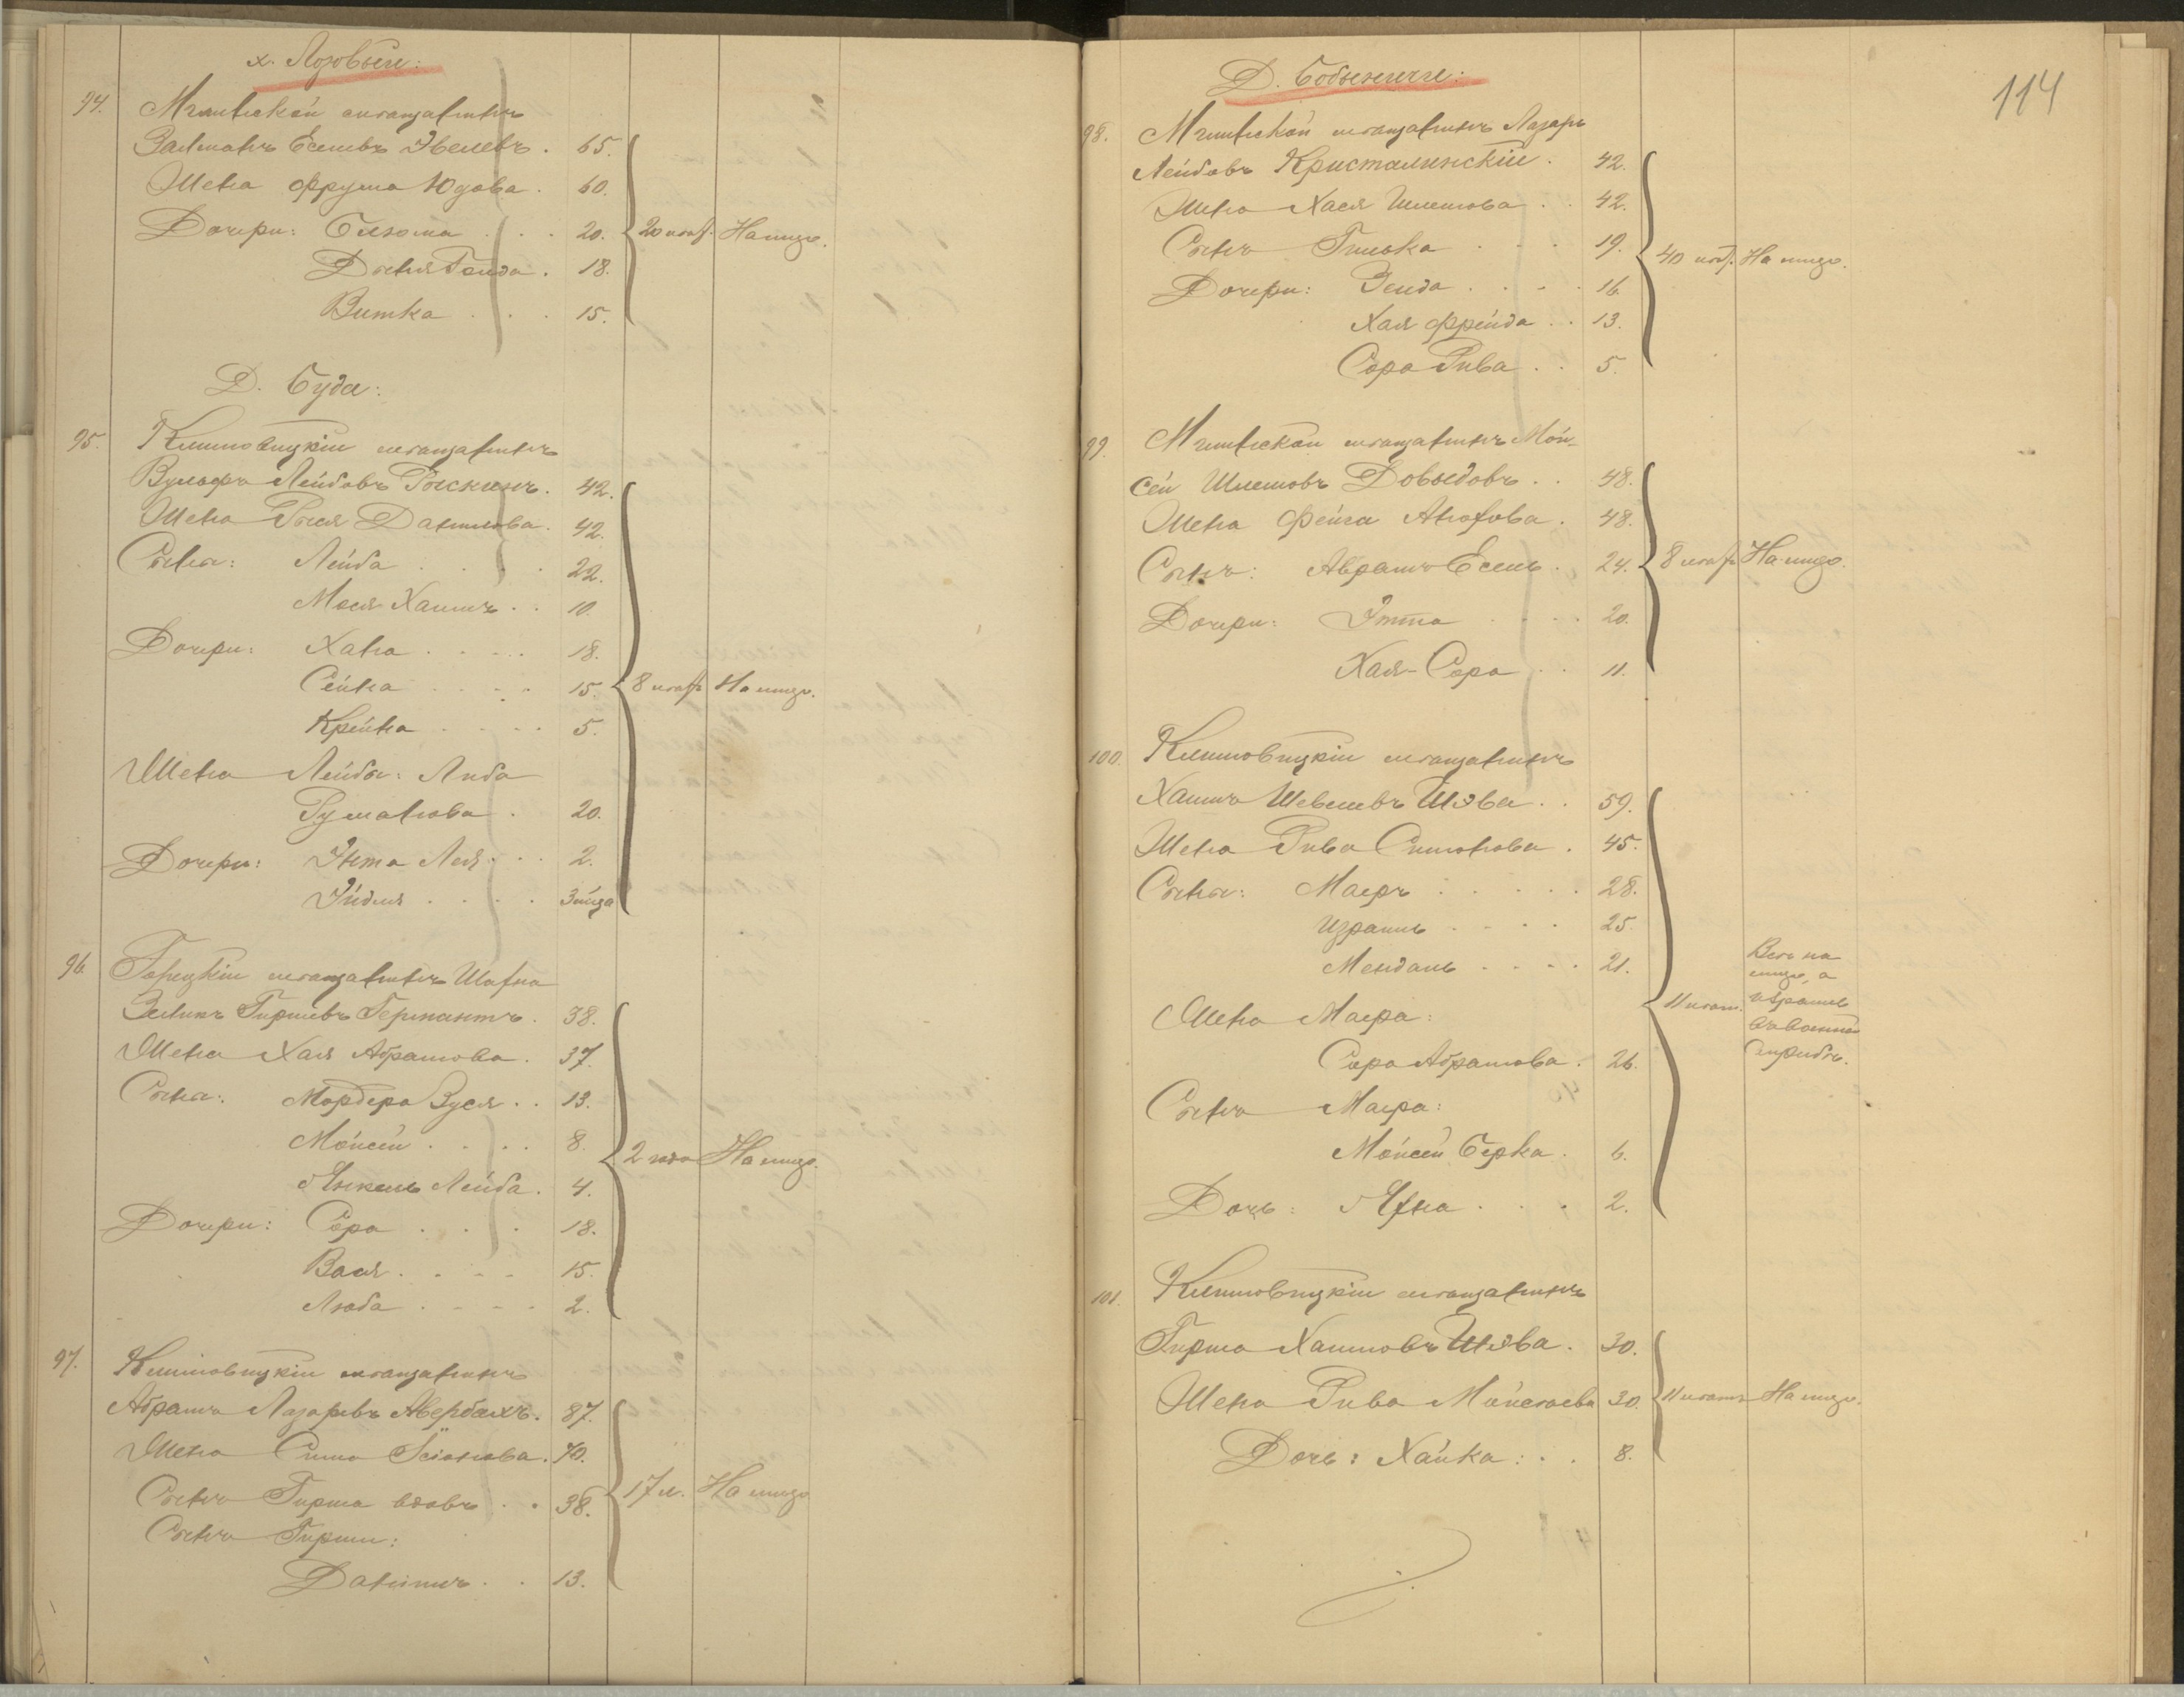 х. Лозовые:
94. Мглинскій мѣщанинъ
Залманъ Еселевъ Эвелевъ. 65.
Жена Фрума Юдова. 60.
Дочери: Блюма . . . 20. 20 лѣт. На лицо.
Двейгенда. 18.
Витка . . . 15.
Д. Буда:
95. Климовицкій мѣщанинъ
Вульфъ Лейбовъ Рыскинъ. 42.
Жена Рися Даникова. 42.
Сыны: Лейба . . . . 22.
Мося Хаимъ . . 10.
Дочери: Хана . . . . 18.
Сейна . . . . 15. 8 лѣтъ На лицо.
Крейна . . . . 5.
Жена Лейбы: Либа
Руманова . 20.
Дочери: Энта Лея . . 2.
Эйдля . . . . 3 мѣца
96. Горецкій мѣщанинъ Шафна
Зеликъ Гиршевъ Германтъ. 38.
Жена Хая Абрамова. 37.
Сыны: Мордера Зуся . . 13.
Мойсей . . . . 8. 2 года На лицо.
Янкель Лейба. 4.
Дочери: Сора . . . 18.
Вася . . . . 15.
Люба . . . . 2.
97. Климовицкій мѣщанинъ
Абрамъ Лазаревъ Авербахъ. 87.
Жена Сима Зсіонова. 70.
Сынъ Гирша вдовъ . . 38. 17 л. На лицо
Сынъ Гирши:
Данимъ . . 13.
114
Д. Бобыничи:
98. Мглинскій мѣщанинъ Лазарь
Лейбовъ Кристалинскій. 42.
Жена Хася Шлемова . . 42.
Сынъ Гилька . . . 19. 40 лѣт. На лицо.
Дочери: Зелда . . . . 16.
Хая Фрейда . . 13.
Сора Рива . . 5.
99. Мглинскій мѣщанинъ Мой-
сей Шлемовъ Довыдовъ . . 48.
Жена Фейга Аноfова. 48.
Сынъ: Абрамъ Есель. 24. 8 лѣтъ На лицо.
Дочери: Этта . . . . 20.
Хая-Сора . . 11.
100. Климовицкій мѣщанинъ
Хаимъ Шевелевъ Шэва . . 59.
Жена Рива Симонова . 45.
Сыны: Маеръ . . . . . 28.
Израиль . . . . 25.
Мендель . . . . 21.
11 лѣтъ. Всѣ на
лицо, а
Израиль
въ военной
службѣ.
Жена Маера:
Сора Абрамова. 26.
Сынъ Маера:
Мойсей Берка. 6.
Дочь: Яхна . . . 2.
101. Климовицкій мѣщанинъ
Гирша Хаимовъ Шэва. 30.
Жена Рива Мойсеева 30. 11 лѣтъ На лицо.
Дочь: Хайка: . . 8.